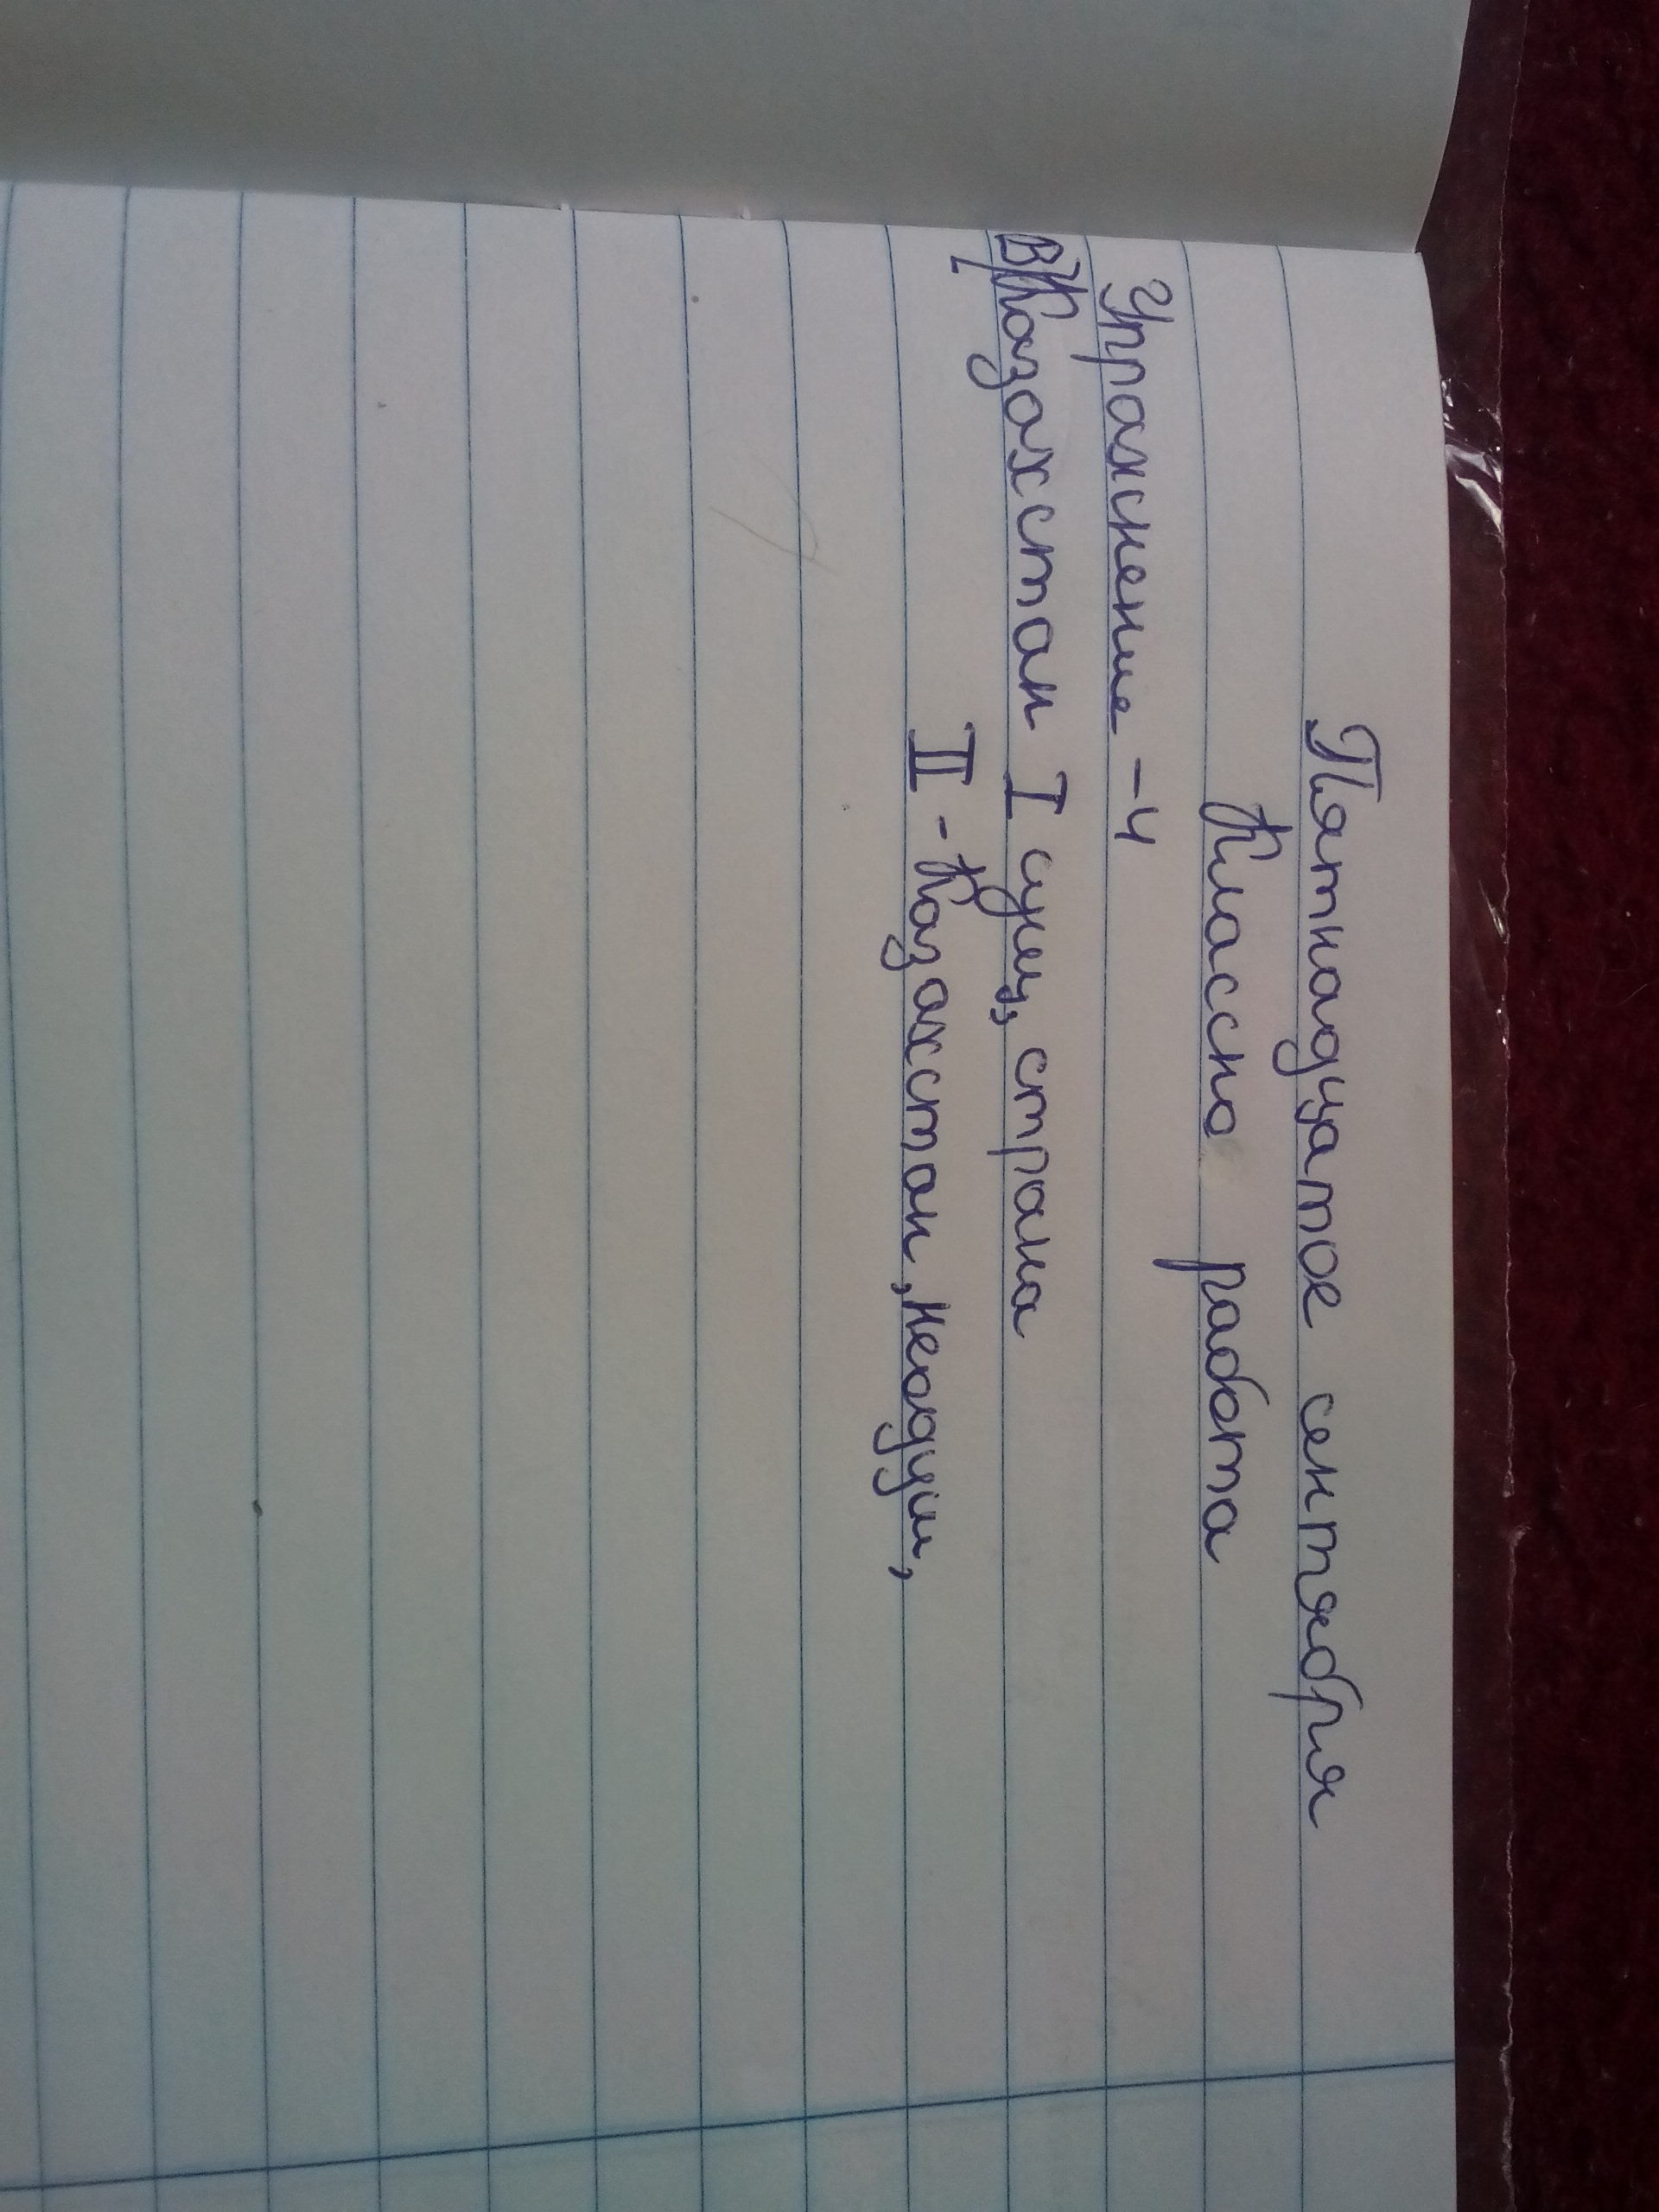 Пятнадцатое сентября
Классна работа
Упражнение -4
Казахстан I сущ, страна
II - Казахстан, Неодуш,